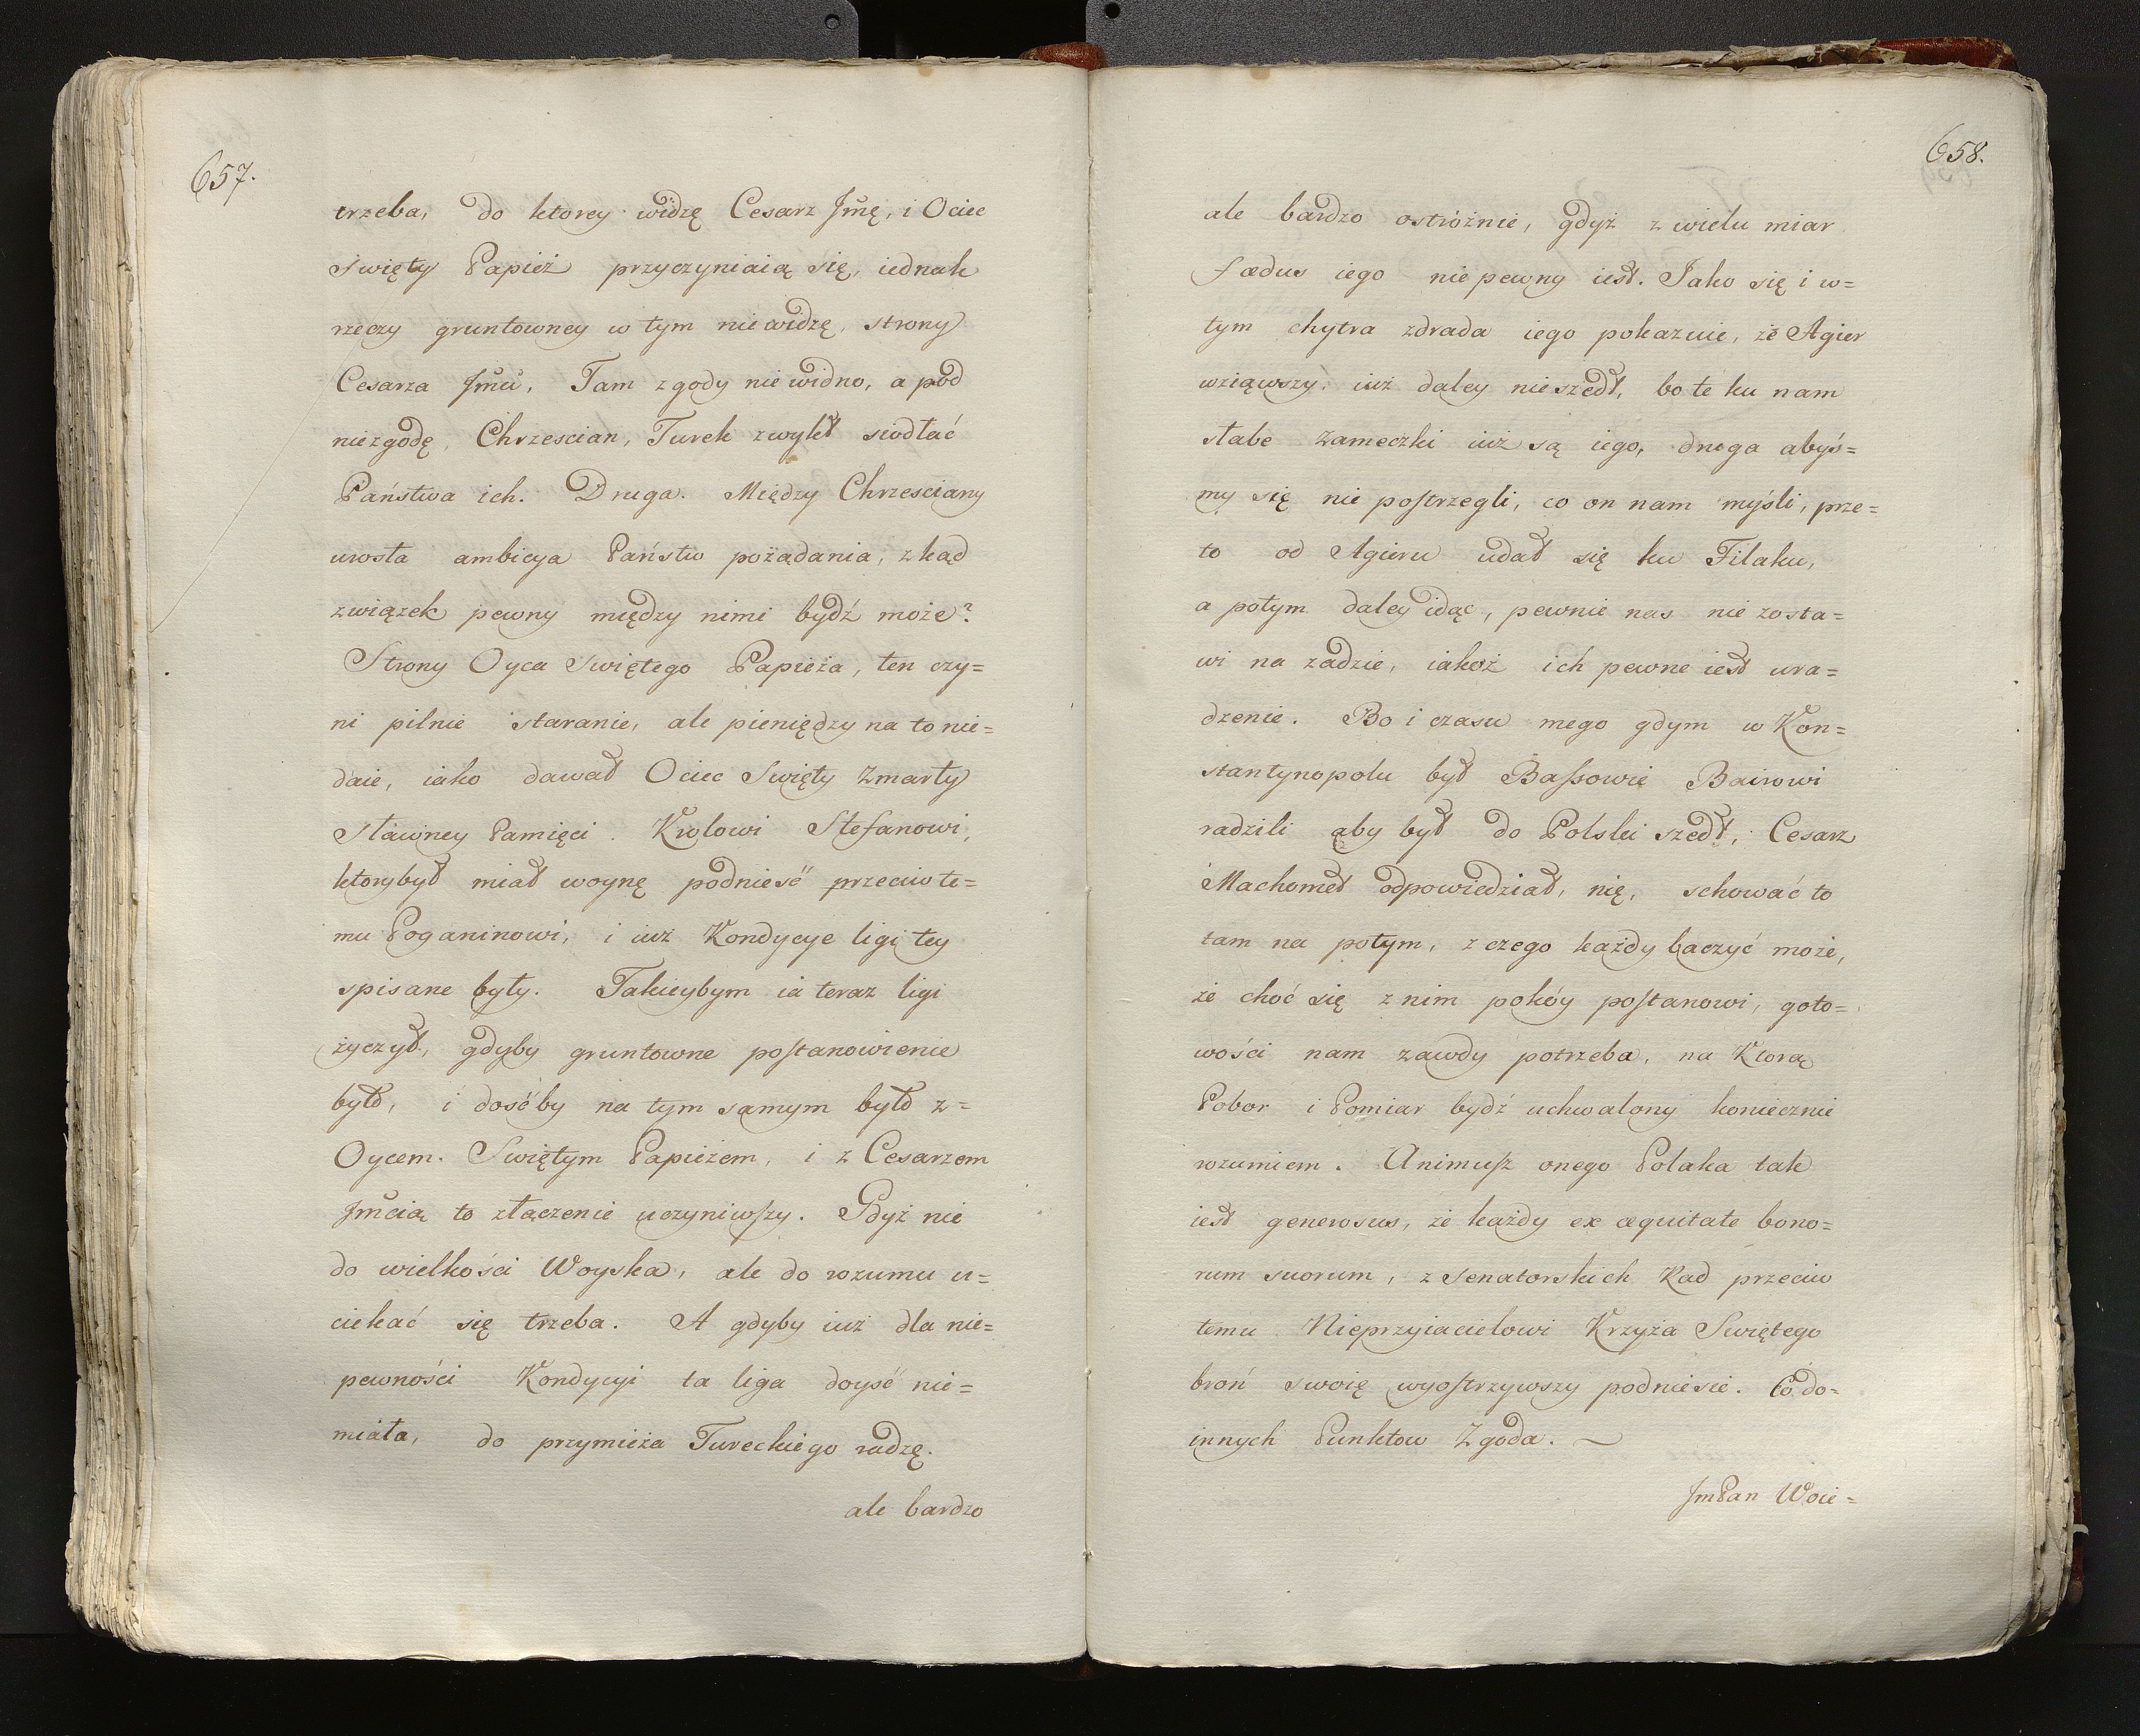 657.
trzeba, do ktorey widzę Cesarz Jmę, i Ociec
Swięty Papież przyczyniaią się, iednak
rzeczy gruntowney w tym nie widzę, strony
Cesarza Jmći, Tam zgody nie widno, a pod
niezgodę, Chrzescian, Turek zwykł siodłać
Państwa ich. Druga. Między Chrzesciany
urosła ambicya Państw pożądania, zkąd
związek pewny między nimi bydź może?
Strony Oyca Swiętego Papieża, ten czy=
ni pilnie staranie, ale pieniędzy na to nie=
daie, iako dawał Ociec Swięty Zmarły
Sławney Pamięci. Krolowi Stefanowi,
ktorybył miał woynę podnieść przeciw te=
mu Poganinowi, i iuż Kondycye ligi tey
spisane były. Takieybym ia teraz ligi
życzył, gdyby gruntowne postanowienie
było, i dośćby na tym samym było z=
Oycem. Swiętym Papieżem, i z Cesarzem
Jmcią to złączenie uczyniwszy. Gdyż nie
do wielkości Woyska, ale do rozumu u=
ciekać się trzeba. A gdyby iuż dla nie=
pewności Kondycyi ta liga doyść nie=
miała, do przymieża Tureckiego radzę.
ale bardzo
658.
ale bardzo ostróżnie, gdyż z wielu miar
fœdus iego nie pewny iest. Jako się i w=
tym chytra zdrada iego pokazuie, że Agier
wziąwszy, iuż daley nie szedł, bo te ku nam
słabe Zameczki iuż są iego, druga abyś=
my się nie postrzegli, co on nam myśli, prze=
to od Agieru udał się ku Filaku,
a potym daley idąc, pewnie nas nie zosta=
wi na zadzie, iakoż ich pewne iest ura=
dzenie. Bo i czasu mego gdym w Kon=
stantynopolu był Bassowie Bairowi
radzili aby był do Polski szedł, Cesarz
Machomet odpowiedział, nię, schować to
tam na potym, z czego każdy baczyć może,
że choć się z nim pokóy postanowi, goto=
wości nam zawdy potrzeba, na Ktorą
Pobor i Pomiar bydź uchwalony koniecznie
rozumiem. Animusz onego Polaka tak
iest generosus, że każdy ex æquitate bono=
rum suorum, z Senatorskich Rad przeciw
temu Nieprzyiacielowi Krzyża Swiętego
broń swoię wyostrzywszy podniesie. Co do=
innych Punktow Zgoda. ~
JmPan Woie=